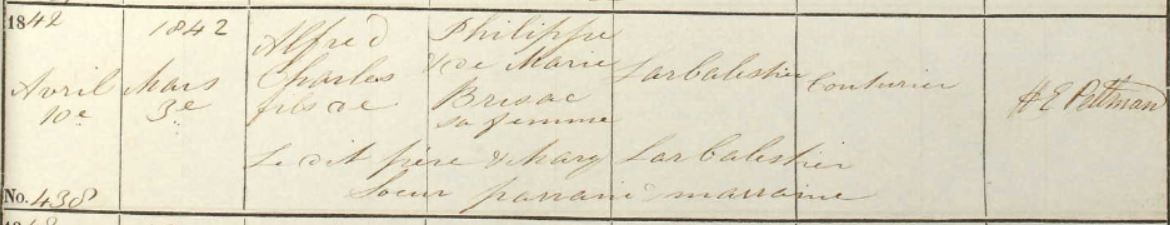 1842
Avril
10e
No. 438
1842
Mars
3e
Alfred
Charles
fils de
Philippe
& de Marie
Brisac
sa femme
Larbalestier
Couturier
H E Pettman
Le dit père & Mary Larbalestier
Soeur parrain & marraine